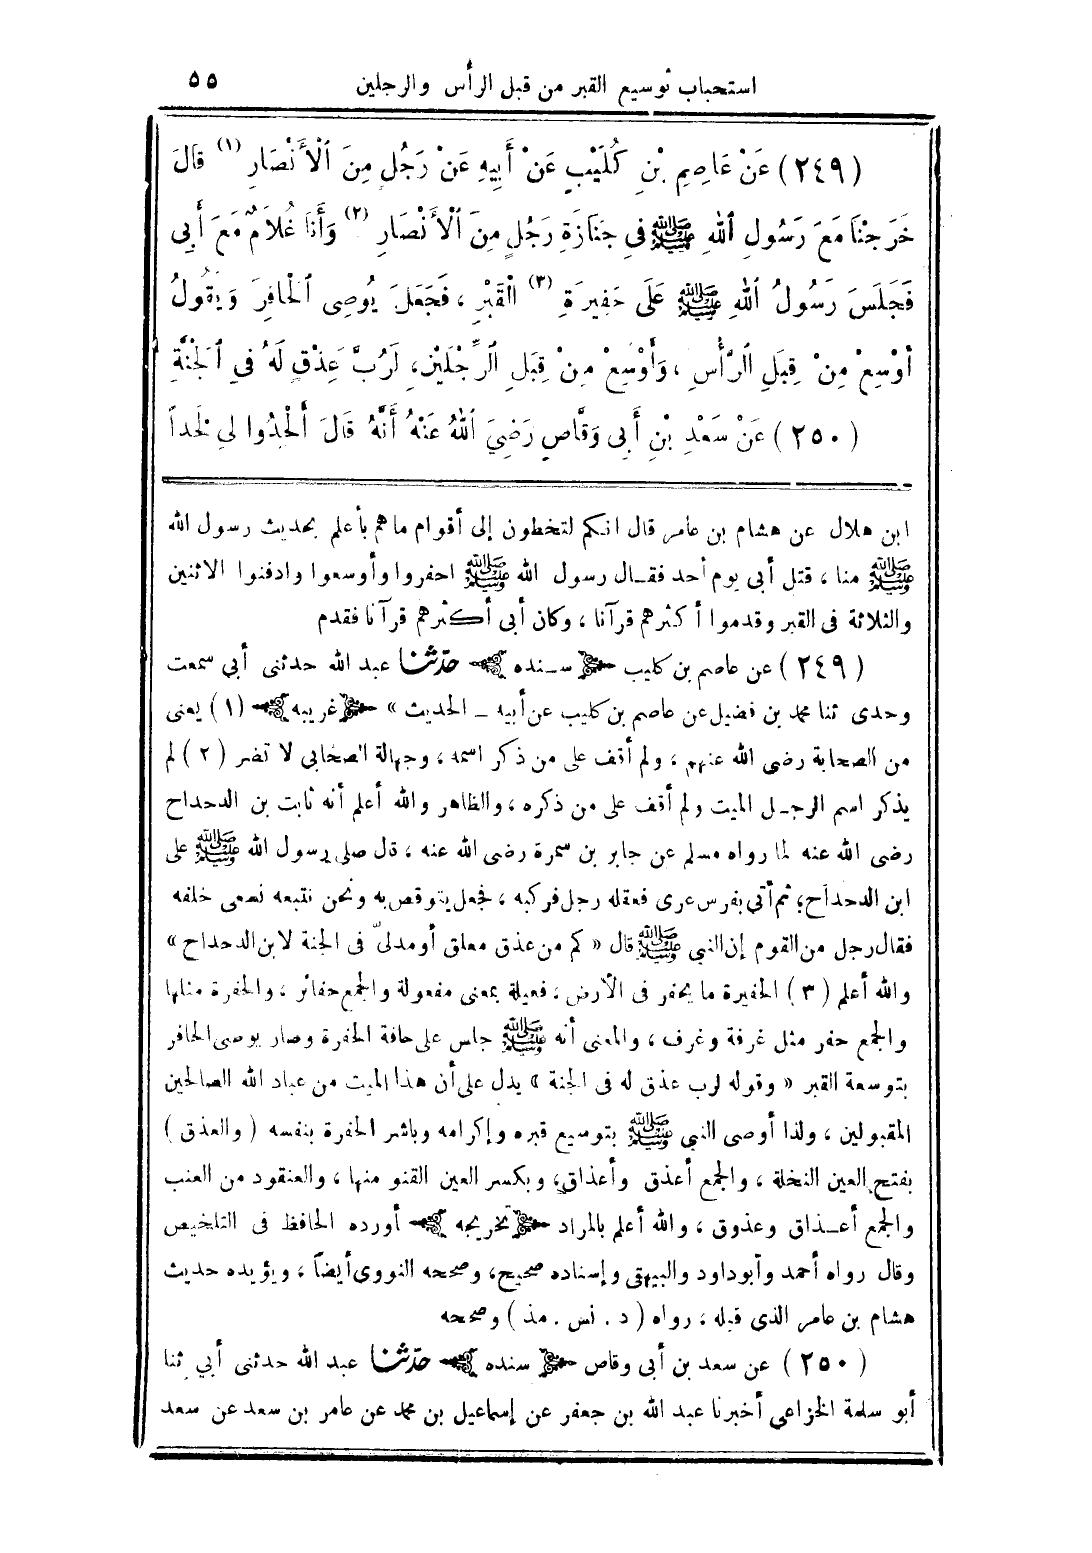 استحباب توسيع القبر من قبل الرأس والرجلين ٥٥
(٢٤٩) عَنْ عَاصِمِ بْنِ كُلَيْبٍ عَنْ أَبِيهِ عَنْ رَجُلٍ مِنَ الْأَنْصَارِ (١) قَالَ
خَرَجْنَا مَعَ رَسُولِ اللهِ ﷺ فِي جَنَازَةِ رَجُلٍ مِنَ الْأَنْصَارِ (٢) وَأَنَا غُلَامٌ مَعَ أَبِي
فَجَلَسَ رَسُولُ اللهِ ﷺ عَلَى حَفِيرَةِ (٣) الْقَبْرِ ، فَجَعَلَ يُوصِى الْحَافِرَ وَيَقُولُ
أَوْسِعْ مِنْ قِبَلِ الرَّأْسِ ، وَأَوْسِعْ مِنْ قِبَلِ الرِّجْلَيْنِ، لَرُبَّ عِذْقٍ لَهُ فِي الْجَنَّةِ
(٢٥٠) عَنْ سَعْدِ بْنِ أَبِي وَقَّاصٍ رَضِيَ اللهُ عَنْهُ أَنَّهُ قَالَ أَلْحِدُوا لِي لَحْداً
ابن هلال عن هشام بن عامر قال انكم لتخطون إلى أقوام ماهم بأعلم بحديث رسول الله
ﷺ منا ، قتل أبى يوم أحد فقال رسول الله ﷺ احفروا وأوسعوا وادفنوا الاثنين
والثلاثة فى القبر وقدموا أكثرهم قرآنا ، وكان أبى أكثرهم قرآنا فقدم
(٢٤٩) عن عاصم بن كليب ﴿ سنده ﴾ حدّثنا عبد الله حدثنى أبي سمعت
وحدى ثنا محمد بن فضيل عن عاصم بن كليب عن أبيه _ الحديث » ﴿ غريبه ﴾ (١) يعنى
من الصحابة رضى الله عنهم ، ولم أقف على من ذكر اسمه ، وجهالة الصحابي لا تضر (٢) لم
يذكر اسم الرجل الميت ولم أقف على من ذكره ، والظاهر والله أعلم أنه ثابت بن الدحداح
رضى الله عنه لما رواه مسلم عن جابر بن سمرة رضى الله عنه ، قال صلى رسول الله ﷺ على
ابن الدحداح؛ ثم أتي بفرس عرى فعقله رجل فركبه ، فجعل يتوقص به ونحن نتبعه نسعى خلفه
فقال رجل من القوم إن النبي ﷺ قال « كم من عذق معلق أو مدلىّ فى الجنة لابن الدحداح »
والله أعلم (٣) الحفيرة ما يحفر فى الأرض ، فعيلة بمعنى مفعولة والجمع حفائر ، والحفرة مثلها
والجمع حفر مثل غرفة وغرف ، والمعنى أنه ﷺ جلس على حافة الحفرة وصار يوصى الحافر
بتوسعة القبر « وقوله لرب عذق له فى الجنة » يدل على أن هذا الميت من عباد الله الصالحين
المقبولين ، ولذا أوصى النبي ﷺ بتوسيع قبره وإكرامه وباشر الحفرة بنفسه (والعذق)
بفتح العين النخلة ، والجمع أعذق وأعذاق، وبكسر العين القنو منها ، والعنقود من العنب
والجمع أعذاق وعذوق ، والله أعلم بالمراد ﴿ تخريجه ﴾ أورده الحافظ فى التلخيص
وقال رواه أحمد وأبوداود والبيهقى وإسناده صحيح، وصححه النووى أيضاً ، ويؤيده حديث
هشام بن عامر الذى قبله ، رواه (د . نس . مذ) وصححه
(٢٥٠) عن سعد بن أبى وقاص ﴿ سنده ﴾ حدّثنا عبد الله حدثنى أبي ثنا
أبو سلمة الخزاعي أخبرنا عبد الله بن جعفر عن إسماعيل بن محمد عن عامر بن سعد عن سعد